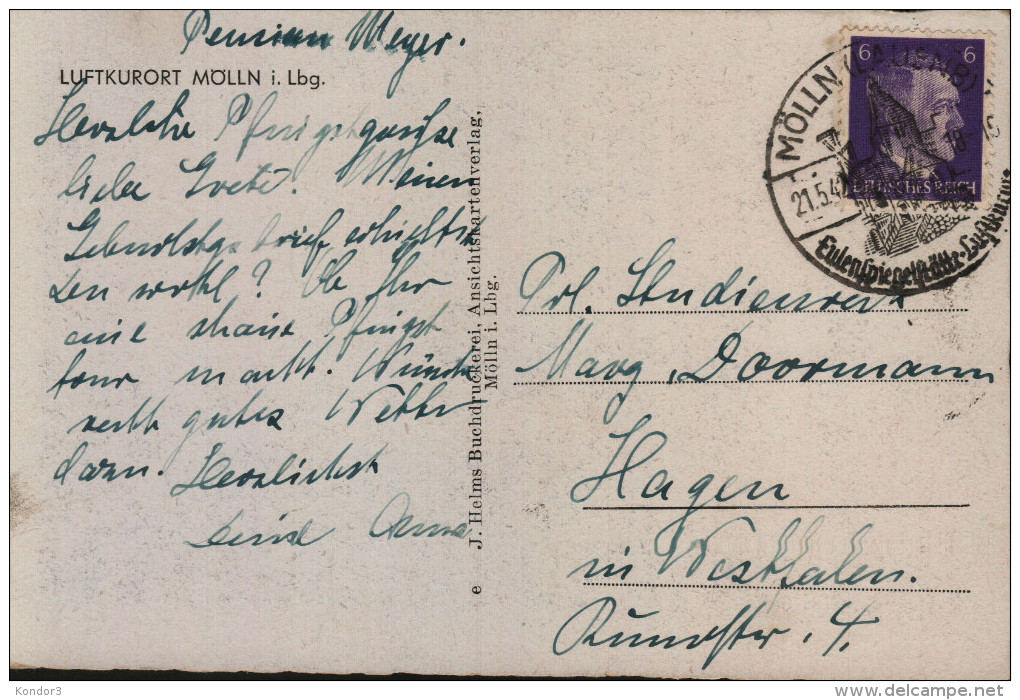 Pension Meyer.
LUFTKURORT MÖLLN i. Lbg.
Herzliche Pfingstgrüsse
liebe Grete. Meinen
Geburtstagsbrief erhieltst
wohl? Ob Ihr
eine Pfingst
tour macht. Wünsche
recht gutes Wetter
dazu. Herzlichst
deine Anna
e J. Helms Buchdruckerei, Ansichtskartenverlag,
Mölln i. Lbg.
6 6
DEUTSCHES REICH
MÖLLN (LAUENB)
21.5.4
Eulenspiegelstätte · Luftkurort
Studienrat
Marg. Doormann
Hagen
in Westfalen.
4.
Kondor3
www.delcampe.net